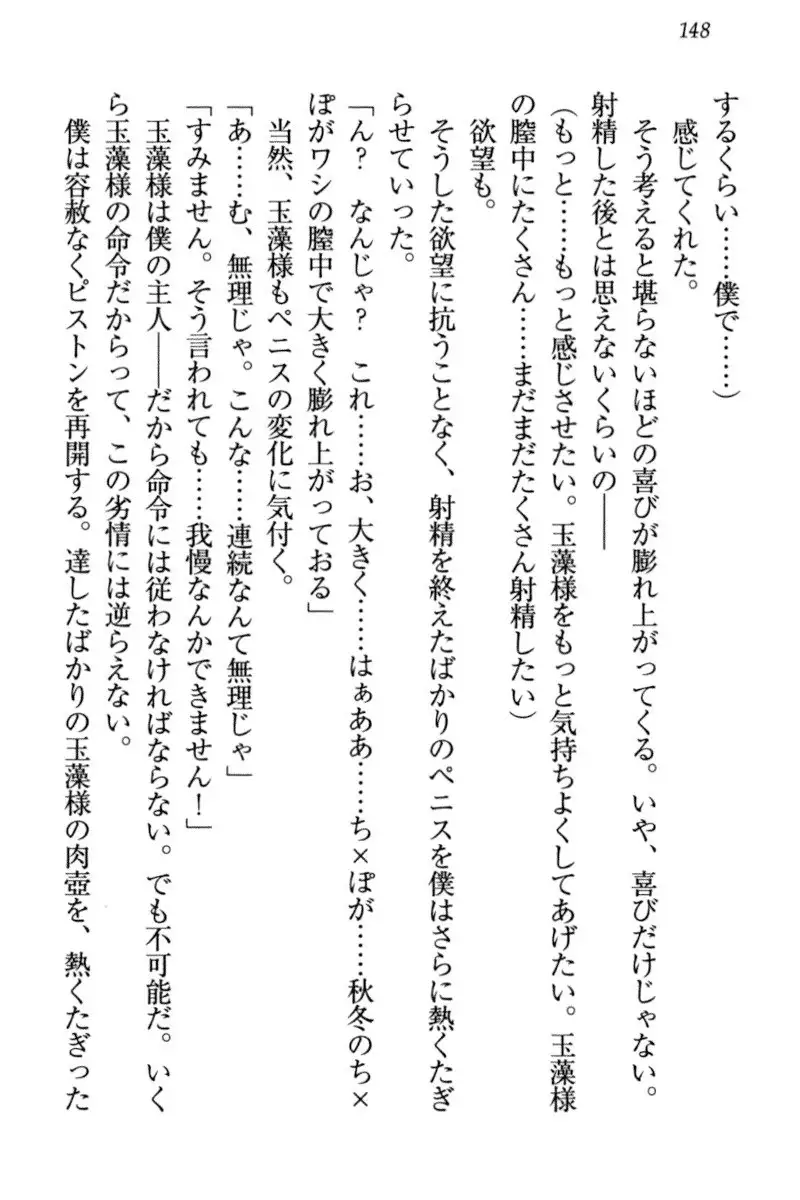 148
するくらい……僕で……）
　感じてくれた。
　そう考えると堪らないほどの喜びが膨れ上がってくる。いや、喜びだけじゃない。
射精した後とは思えないくらいの――
（もっと……もっと感じさせたい。玉藻様をもっと気持ちよくしてあげたい。玉藻様
の膣中にたくさん……まだまだたくさん射精したい）
　欲望も。
　そうした欲望に抗うことなく、射精を終えたばかりのペニスを僕はさらに熱くたぎ
らせていった。
「ん？　なんじゃ？　これ……お、大きく……はぁああ……ち×ぽが……秋冬のち×
ぽがワシの膣中で大きく膨れ上がっておる」
　当然、玉藻様もペニスの変化に気付く。
「あ……む、無理じゃ。こんな……連続なんて無理じゃ」
「すみません。そう言われても……我慢なんかできません！」
　玉藻様は僕の主人――だから命令には従わなければならない。でも不可能だ。いく
ら玉藻様の命令だからって、この劣情には逆らえない。
　僕は容赦なくピストンを再開する。達したばかりの玉藻様の肉壺を、熱くたぎった